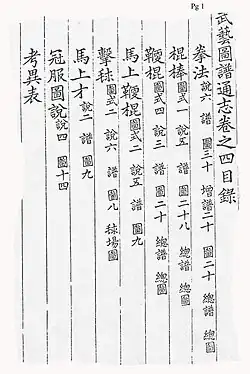 Pg 1
武藝圖譜通志卷之四目錄
拳法 說六 譜 圖三十 增譜二十 圖二十 總譜 總圖
棍棒 圖式一 說五 譜 圖二十八 總譜 總圖
鞭棍 圖式四 說三 譜 圖二十 總譜 總圖
馬上鞭棍 圖式二 說五 譜 圖九
擊毬 圖式二 說六 譜 圖八 毬場圖
馬上才 說二 譜 圖九
冠服圖說 說四 圖十四
考異表